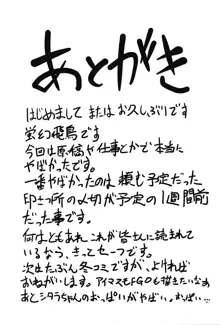 あとがき
はじめまして または お久しぶりです
蛍幻飛鳥です
今回は原稿や仕事とかで本当に
やばかったです。
一番やばかったのは 頼む予定だった
印さつ所の〆切が予定の1週間前
だった事です。
何はともあれ これが皆さんに読まれて
いるなら、きっとセーフです。
次はたぶん冬コミですが、よければ
おねがいします。アイマスもFGOも描きたいなぁ
あと シタラちゃんのおっぱいがやばい。